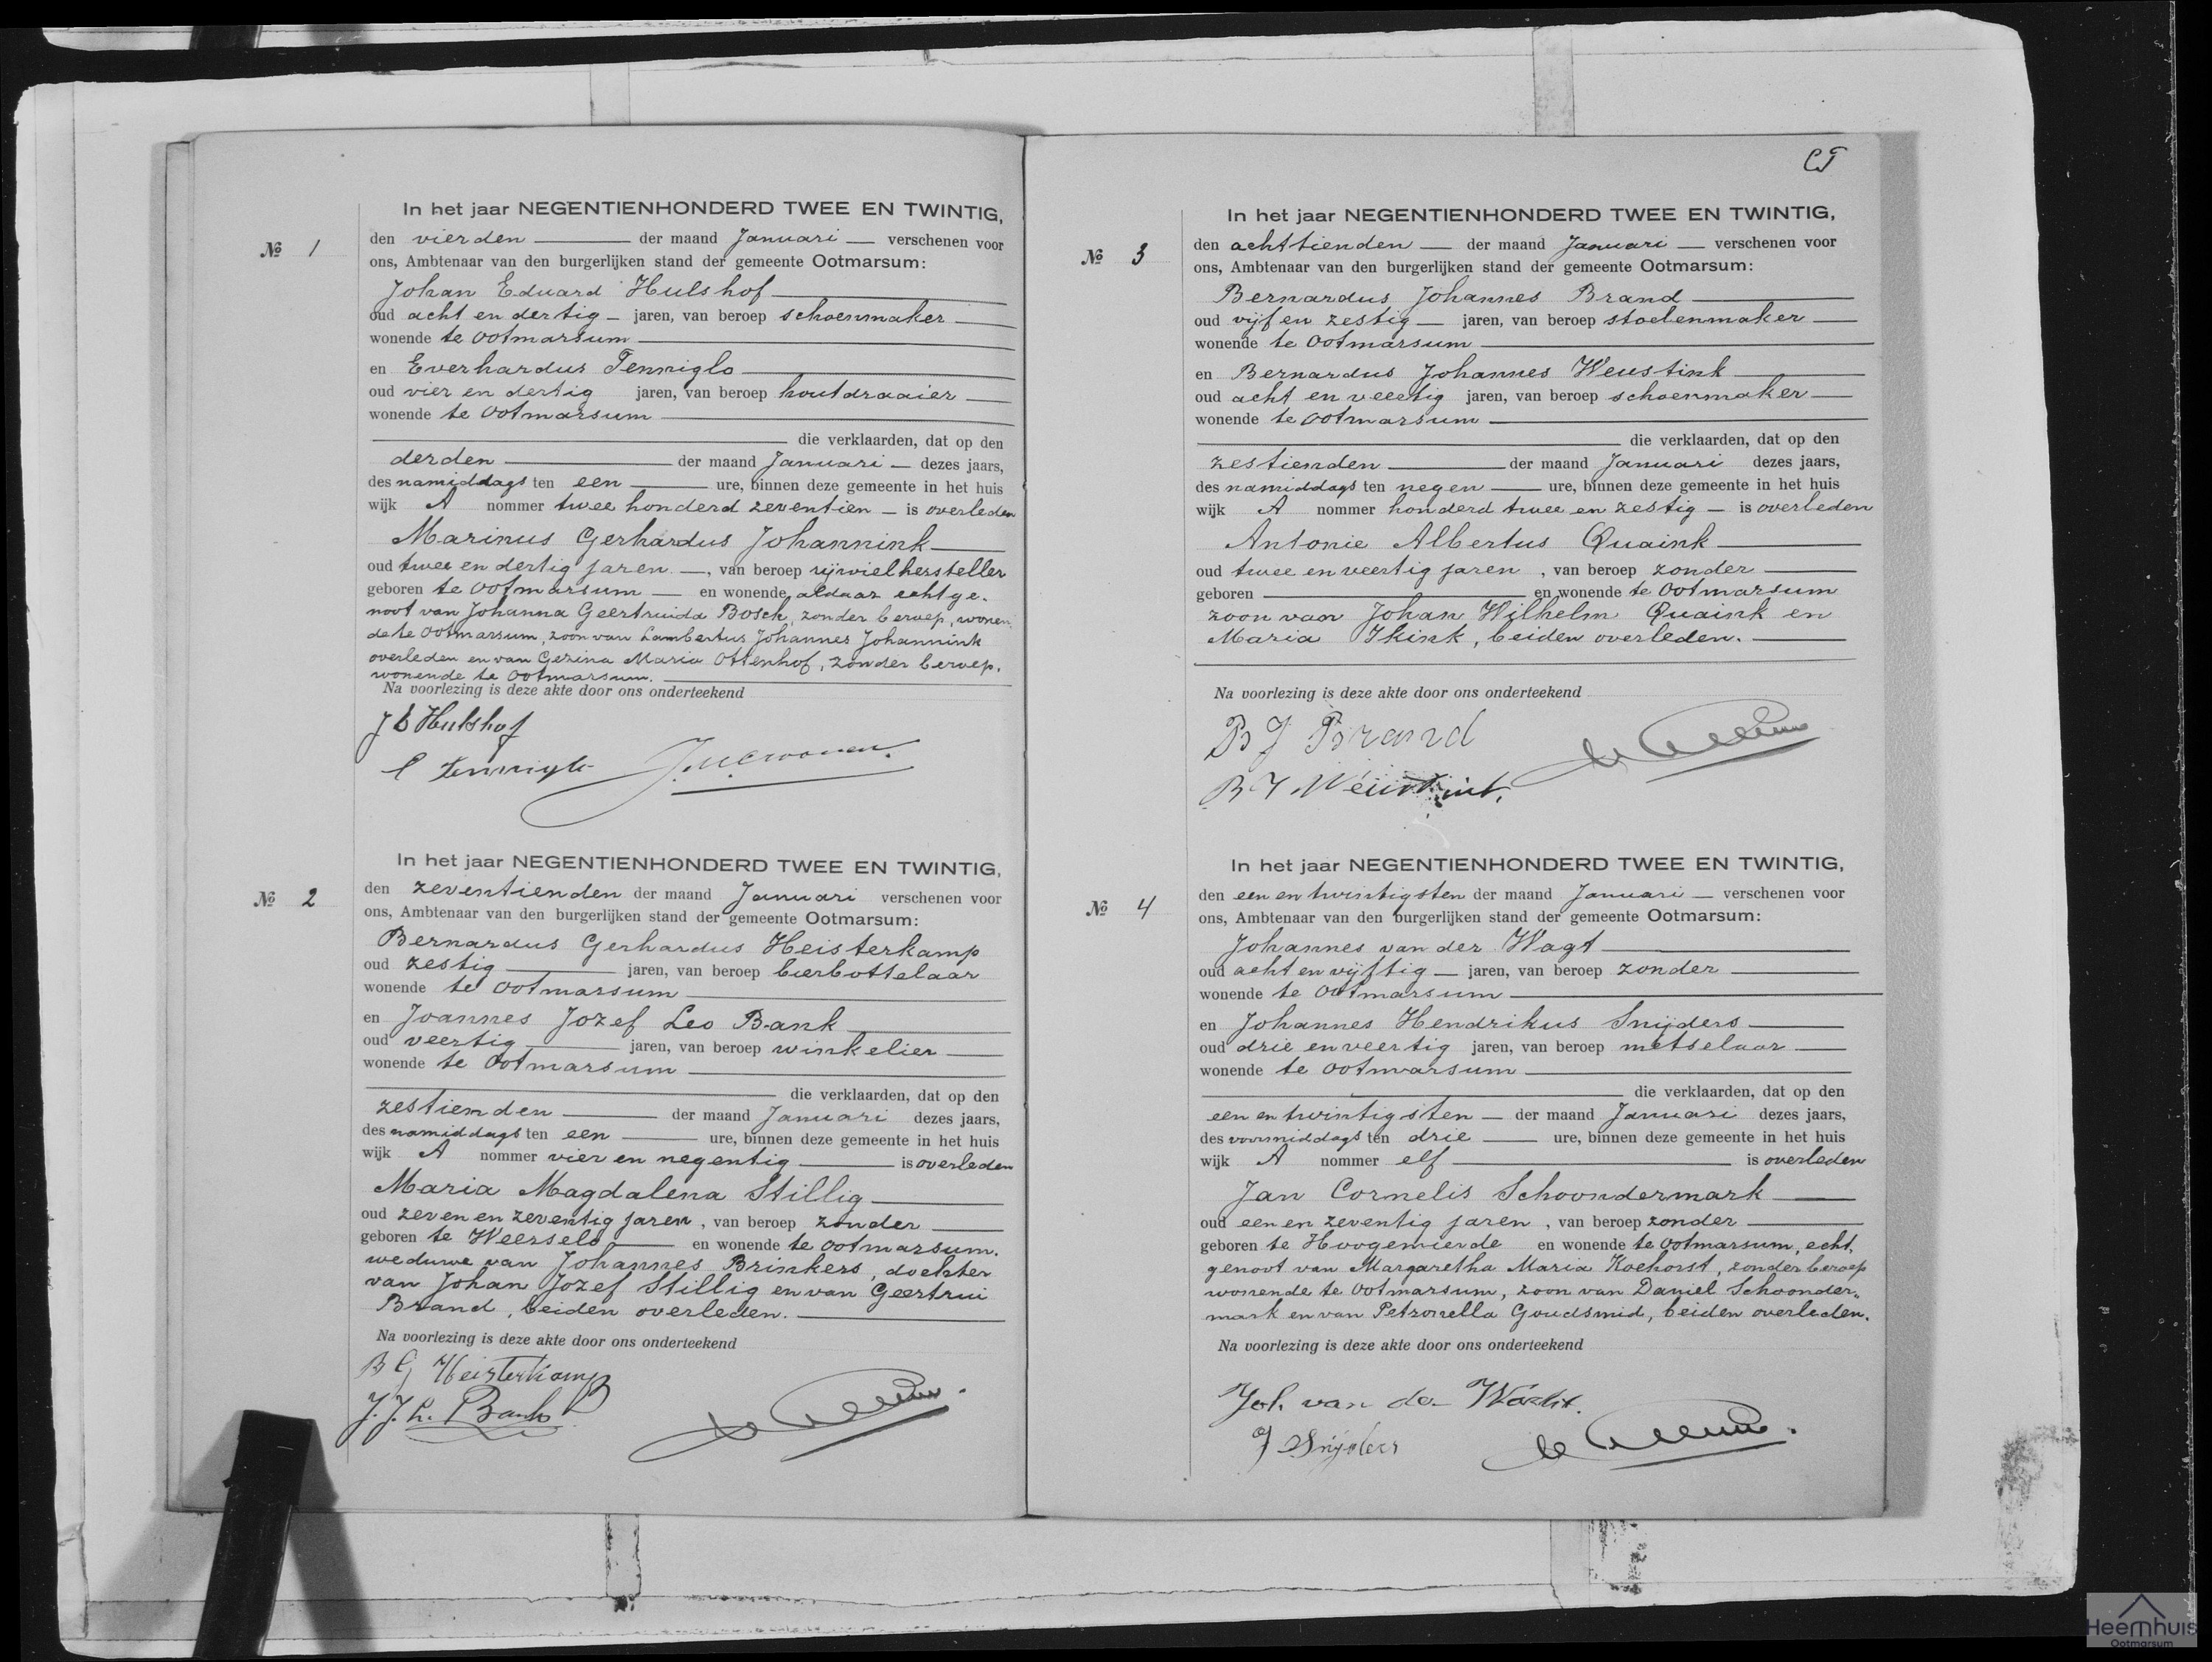 In het jaar NEGENTIENHONDERD TWEE EN TWINTIG,
№ 1
den vierden der maand Januari verschenen voor
ons, Ambtenaar van den burgerlijken stand der gemeente Ootmarsum:
Johan Eduard Hulshof
oud acht en dertig jaren, van beroep schoenmaker
wonende te Ootmarsum
en Everhardus Tenniglo
oud vier en dertig jaren, van beroep houtdraaier
wonende te Ootmarsum
die verklaarden, dat op den
derden der maand Januari dezes jaars,
des namiddags ten een ure, binnen deze gemeente in het huis
wijk A nommer twee honderd zeventien is overleden
Marinus Gerhardus Johannink
oud twee en dertig jaren, van beroep rijwielhersteller
geboren te Ootmarsum en wonende aldaar echtge-
noot van Johanna Geertruida Bosch, zonder beroep, wonen-
de te Ootmarsum, zoon van Lambertus Johannes Johannink
overleden en van Gezina Maria Ottenhof, zonder beroep,
wonende te Ootmarsum.
Na voorlezing is deze akte door ons onderteekend
J E Hulshof
E Tenniglo
In het jaar NEGENTIENHONDERD TWEE EN TWINTIG,
№ 2
den zeventienden der maand Januari verschenen voor
ons, Ambtenaar van den burgerlijken stand der gemeente Ootmarsum:
Bernardus Gerhardus Heisterkamp
oud zestig jaren, van beroep bierbottelaar
wonende te Ootmarsum
en Joannes Jozef Leo Bank
oud veertig jaren, van beroep winkelier
wonende te Ootmarsum
die verklaarden, dat op den
zestienden der maand Januari dezes jaars,
des namiddags ten een ure, binnen deze gemeente in het huis
wijk A nommer vier en negentig is overleden
Maria Magdalena Stillig
oud zeven en zeventig jaren, van beroep zonder
geboren te Weerselo en wonende te Ootmarsum.
weduwe van Johannes Brinkers, dochter
van Johan Jozef Stillig en van Geertrui
Brand, beiden overleden.
Na voorlezing is deze akte door ons onderteekend
B G Heisterkamp
J. J. L. Bank
CT
In het jaar NEGENTIENHONDERD TWEE EN TWINTIG,
№ 3
den achttienden der maand Januari verschenen voor
ons, Ambtenaar van den burgerlijken stand der gemeente Ootmarsum:
Bernardus Johannes Brand
oud vijf en zestig jaren, van beroep stoelenmaker
wonende te Ootmarsum
en Bernardus Johannes Weustink
oud acht en veertig jaren, van beroep schoenmaker
wonende te Ootmarsum
die verklaarden, dat op den
zestienden der maand Januari dezes jaars,
des namiddags ten negen ure, binnen deze gemeente in het huis
wijk A nommer honderd twee en zestig is overleden
Antonie Albertus Quaink
oud twee en veertig jaren, van beroep zonder
geboren en wonende te Ootmarsum
zoon van Johan Wilhelm Quaink en
Maria Ikink, beiden overleden.
Na voorlezing is deze akte door ons onderteekend
B J Brand
B J Weustink.
In het jaar NEGENTIENHONDERD TWEE EN TWINTIG,
№ 4
den een en twintigsten der maand Januari verschenen voor
ons, Ambtenaar van den burgerlijken stand der gemeente Ootmarsum:
Johannes van der Wagt
oud acht en vijftig jaren, van beroep zonder
wonende te Ootmarsum
en Johannes Hendrikus Snijders
oud drie en veertig jaren, van beroep metselaar
wonende te Ootmarsum
die verklaarden, dat op den
een en twintigsten der maand Januari dezes jaars,
des voormiddags ten drie ure, binnen deze gemeente in het huis
wijk A nommer elf is overleden
Jan Cornelis Schoondermark
oud een en zeventig jaren, van beroep zonder
geboren te Hoogemierde en wonende te Ootmarsum, echt-
genoot van Margaretha Maria Koehorst, zonder beroep
wonende te Ootmarsum, zoon van Daniel Schoonder-
mark en van Petronella Goudsmid, beiden overleden.
Na voorlezing is deze akte door ons onderteekend
Joh. van der Wacht.
J Snijders
Heemhuis
Ootmarsum